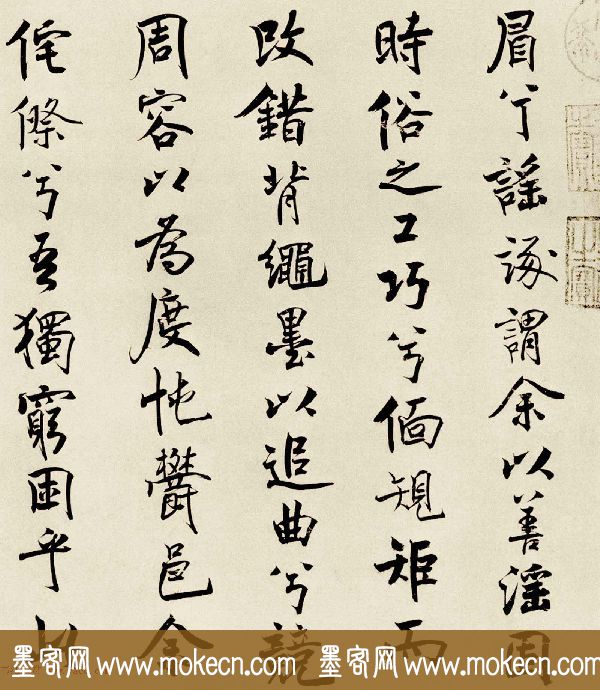 眉兮謠諑謂余以善淫固
時俗之工巧兮偭規矩而
改錯背繩墨以追曲兮競
周容以為度忳鬱邑余
侘傺兮吾獨窮困乎此
墨客网 www.mokecn.com 墨客网 www.mokecn.com